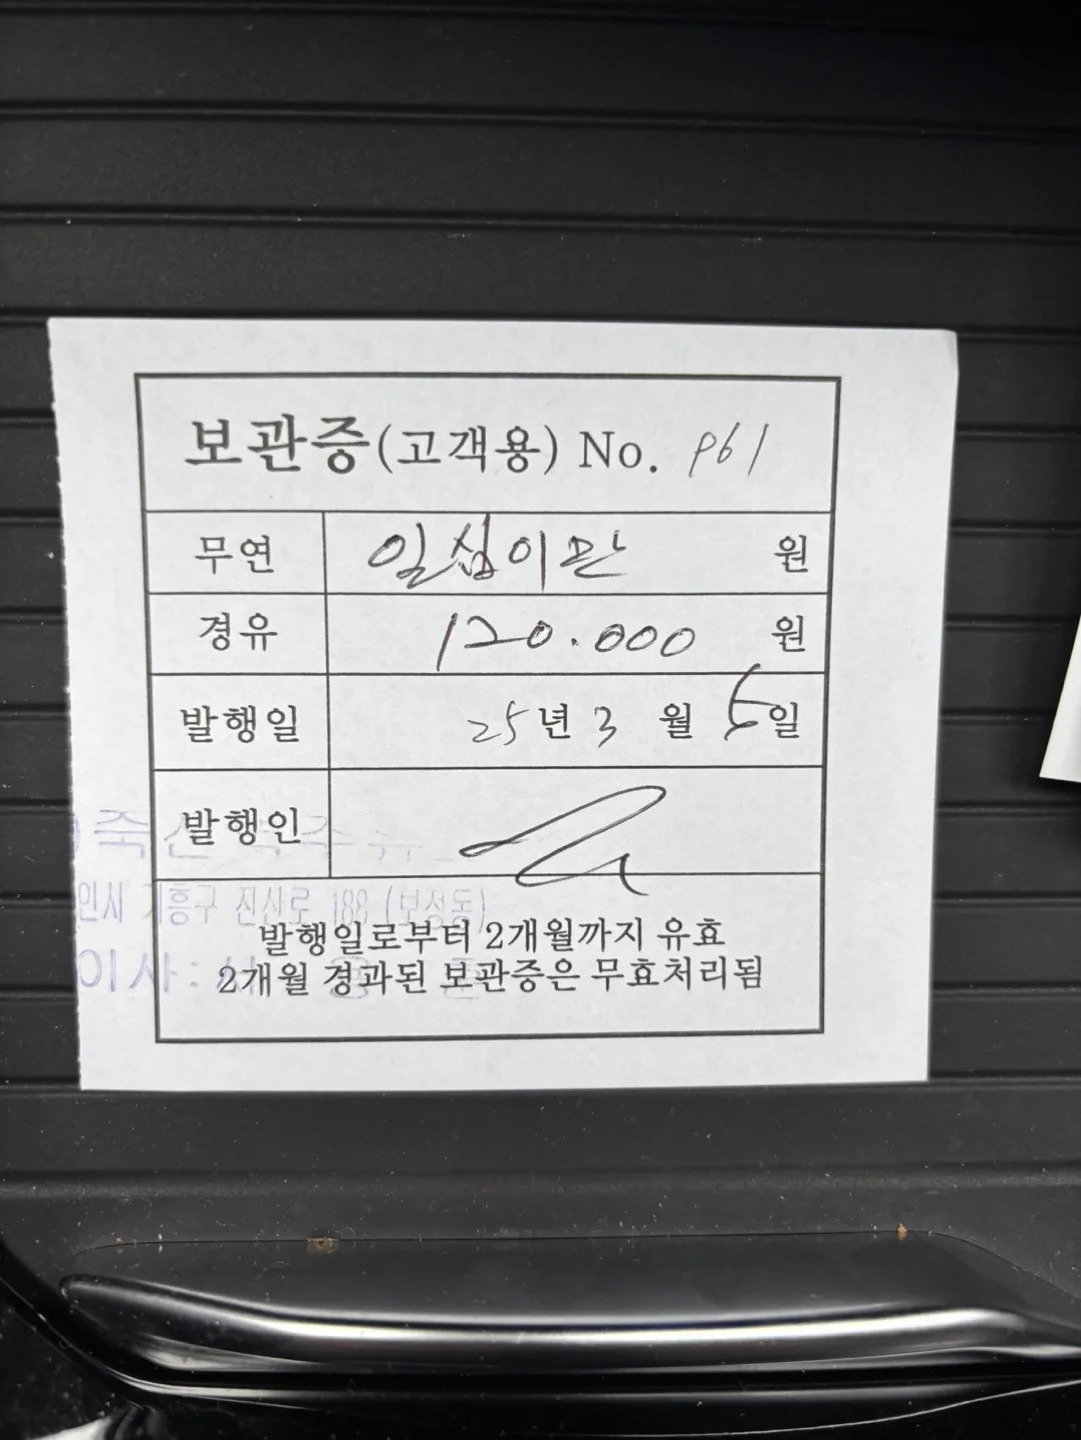 보관증(고객용) No. 961
무연 일십이만 원
경유 120.000 원
발행일 25년 3 월 5일
발행인
인시 기흥구 진산로 188 (보정동)
발행일로부터 2개월까지 유효
이사:
2개월 경과된 보관증은 무효처리됨